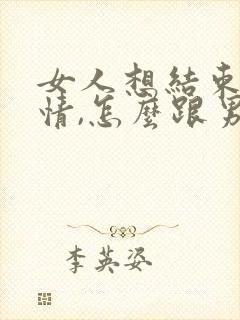 女人想結束
情,怎麼跟男
李英姿